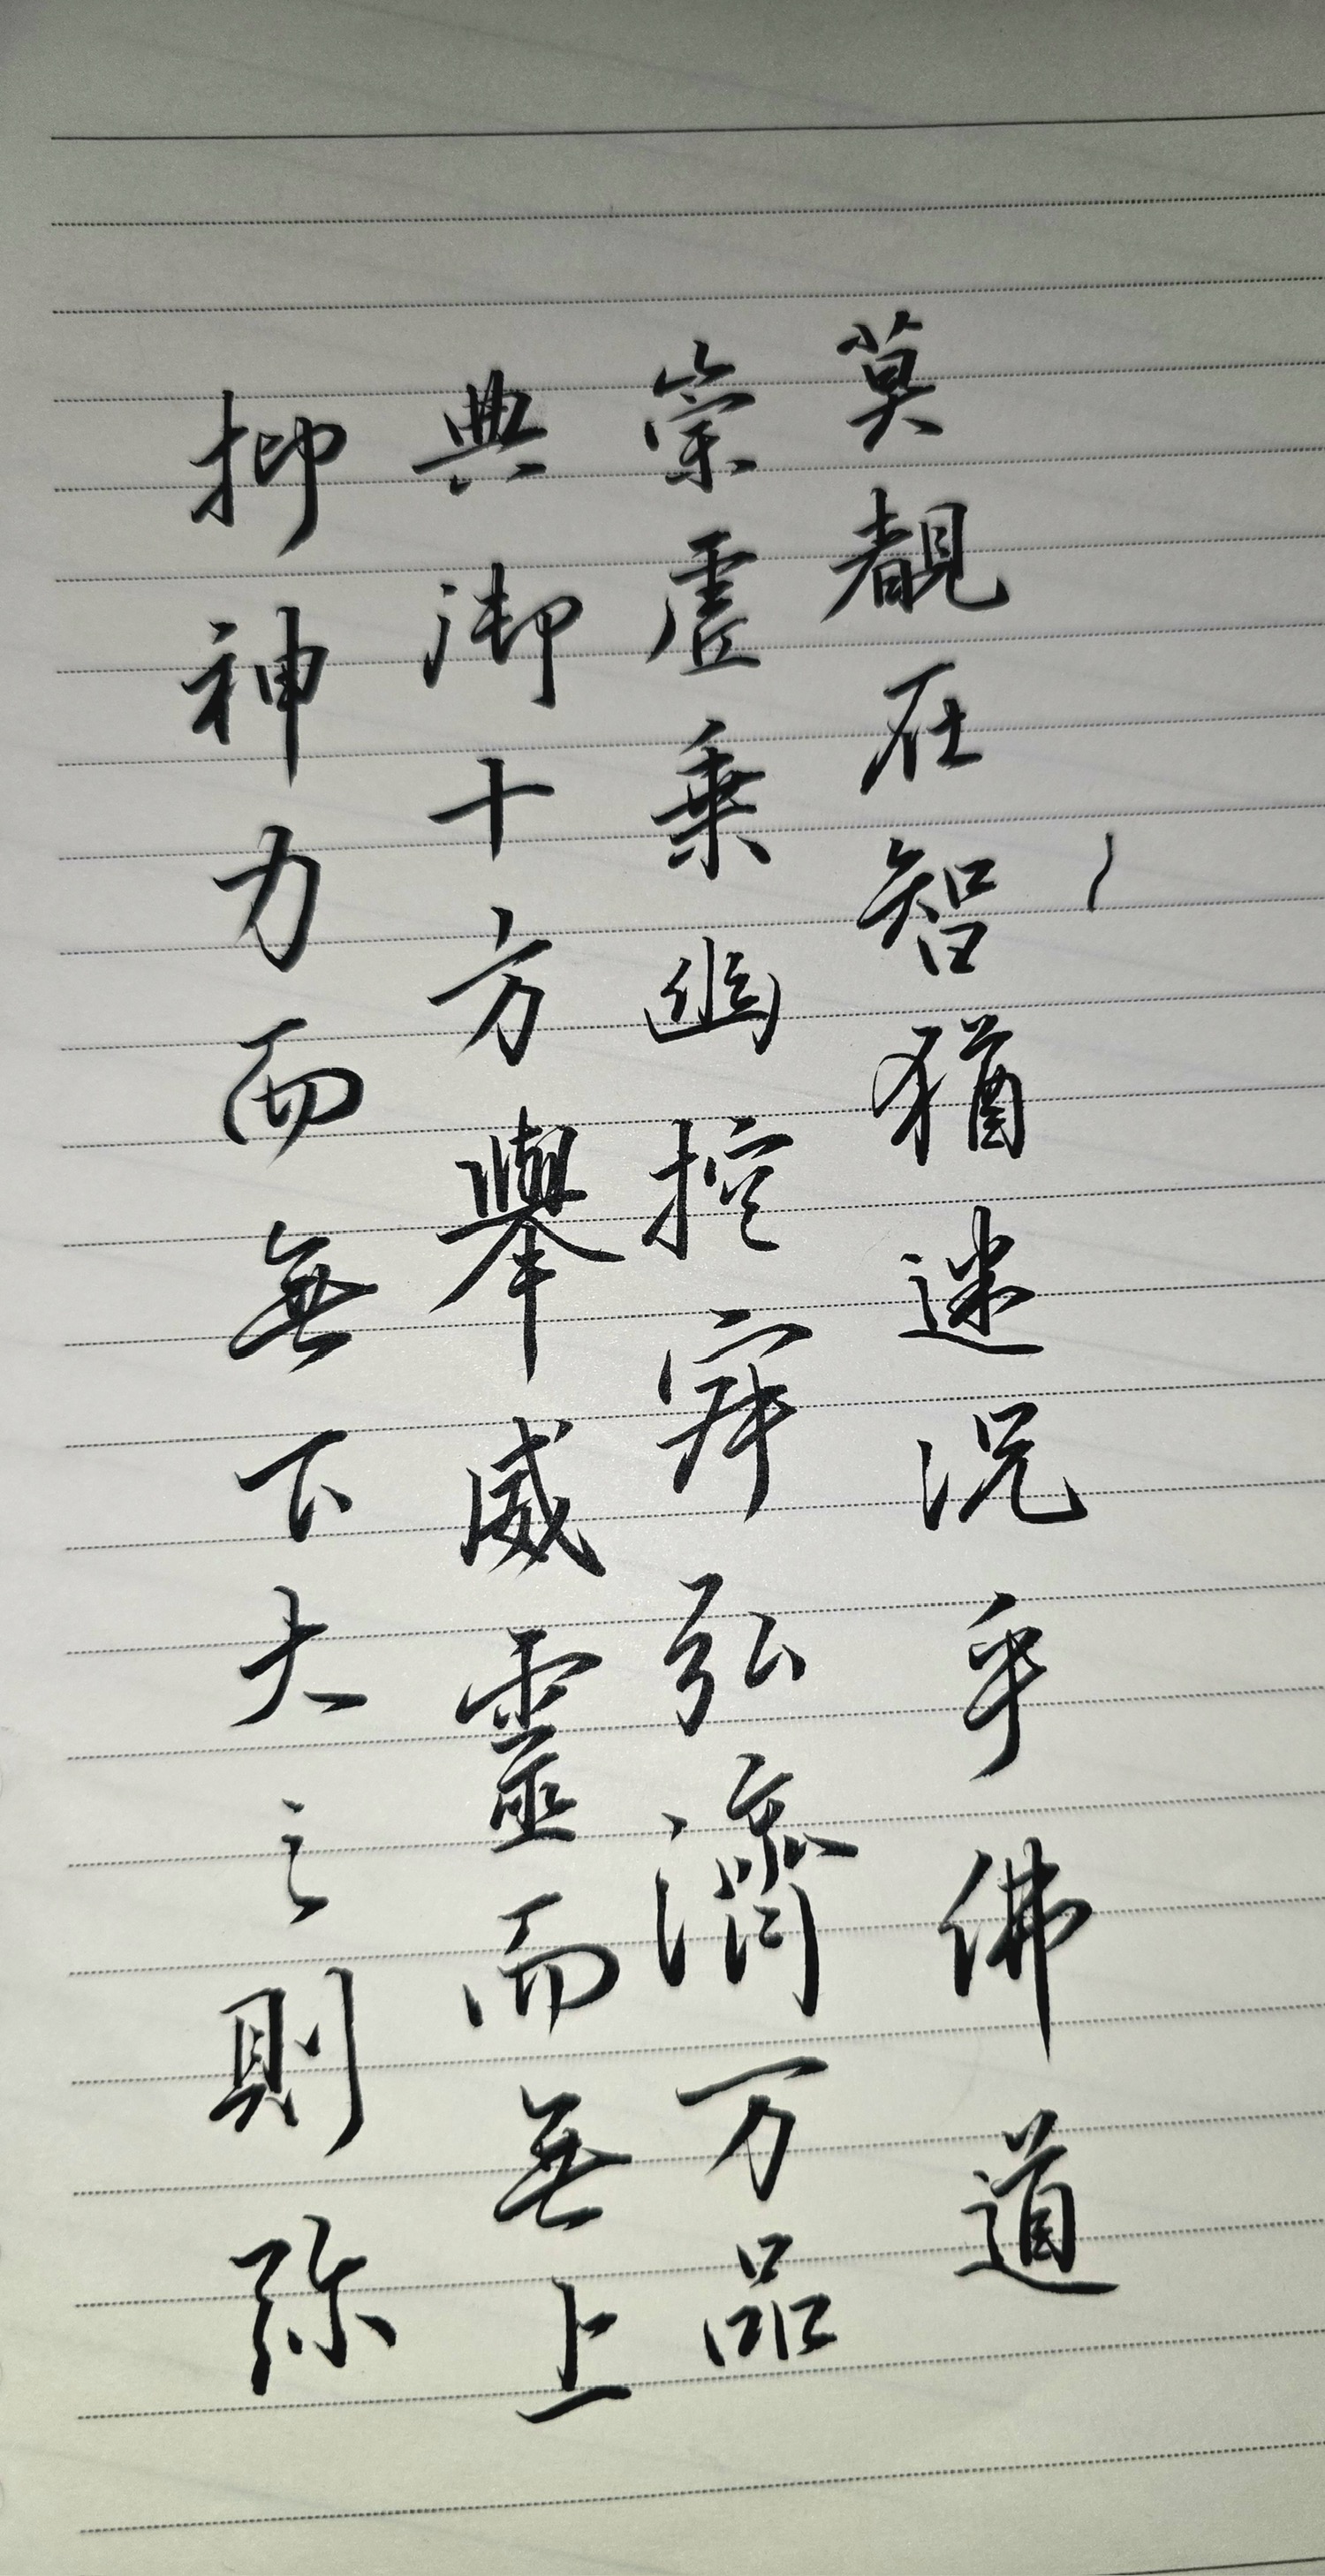 莫覩在智猶迷況乎佛道
崇虛乗幽控寂弘濟万品
典御十方舉威靈而無上
抑神力而無下大之則弥